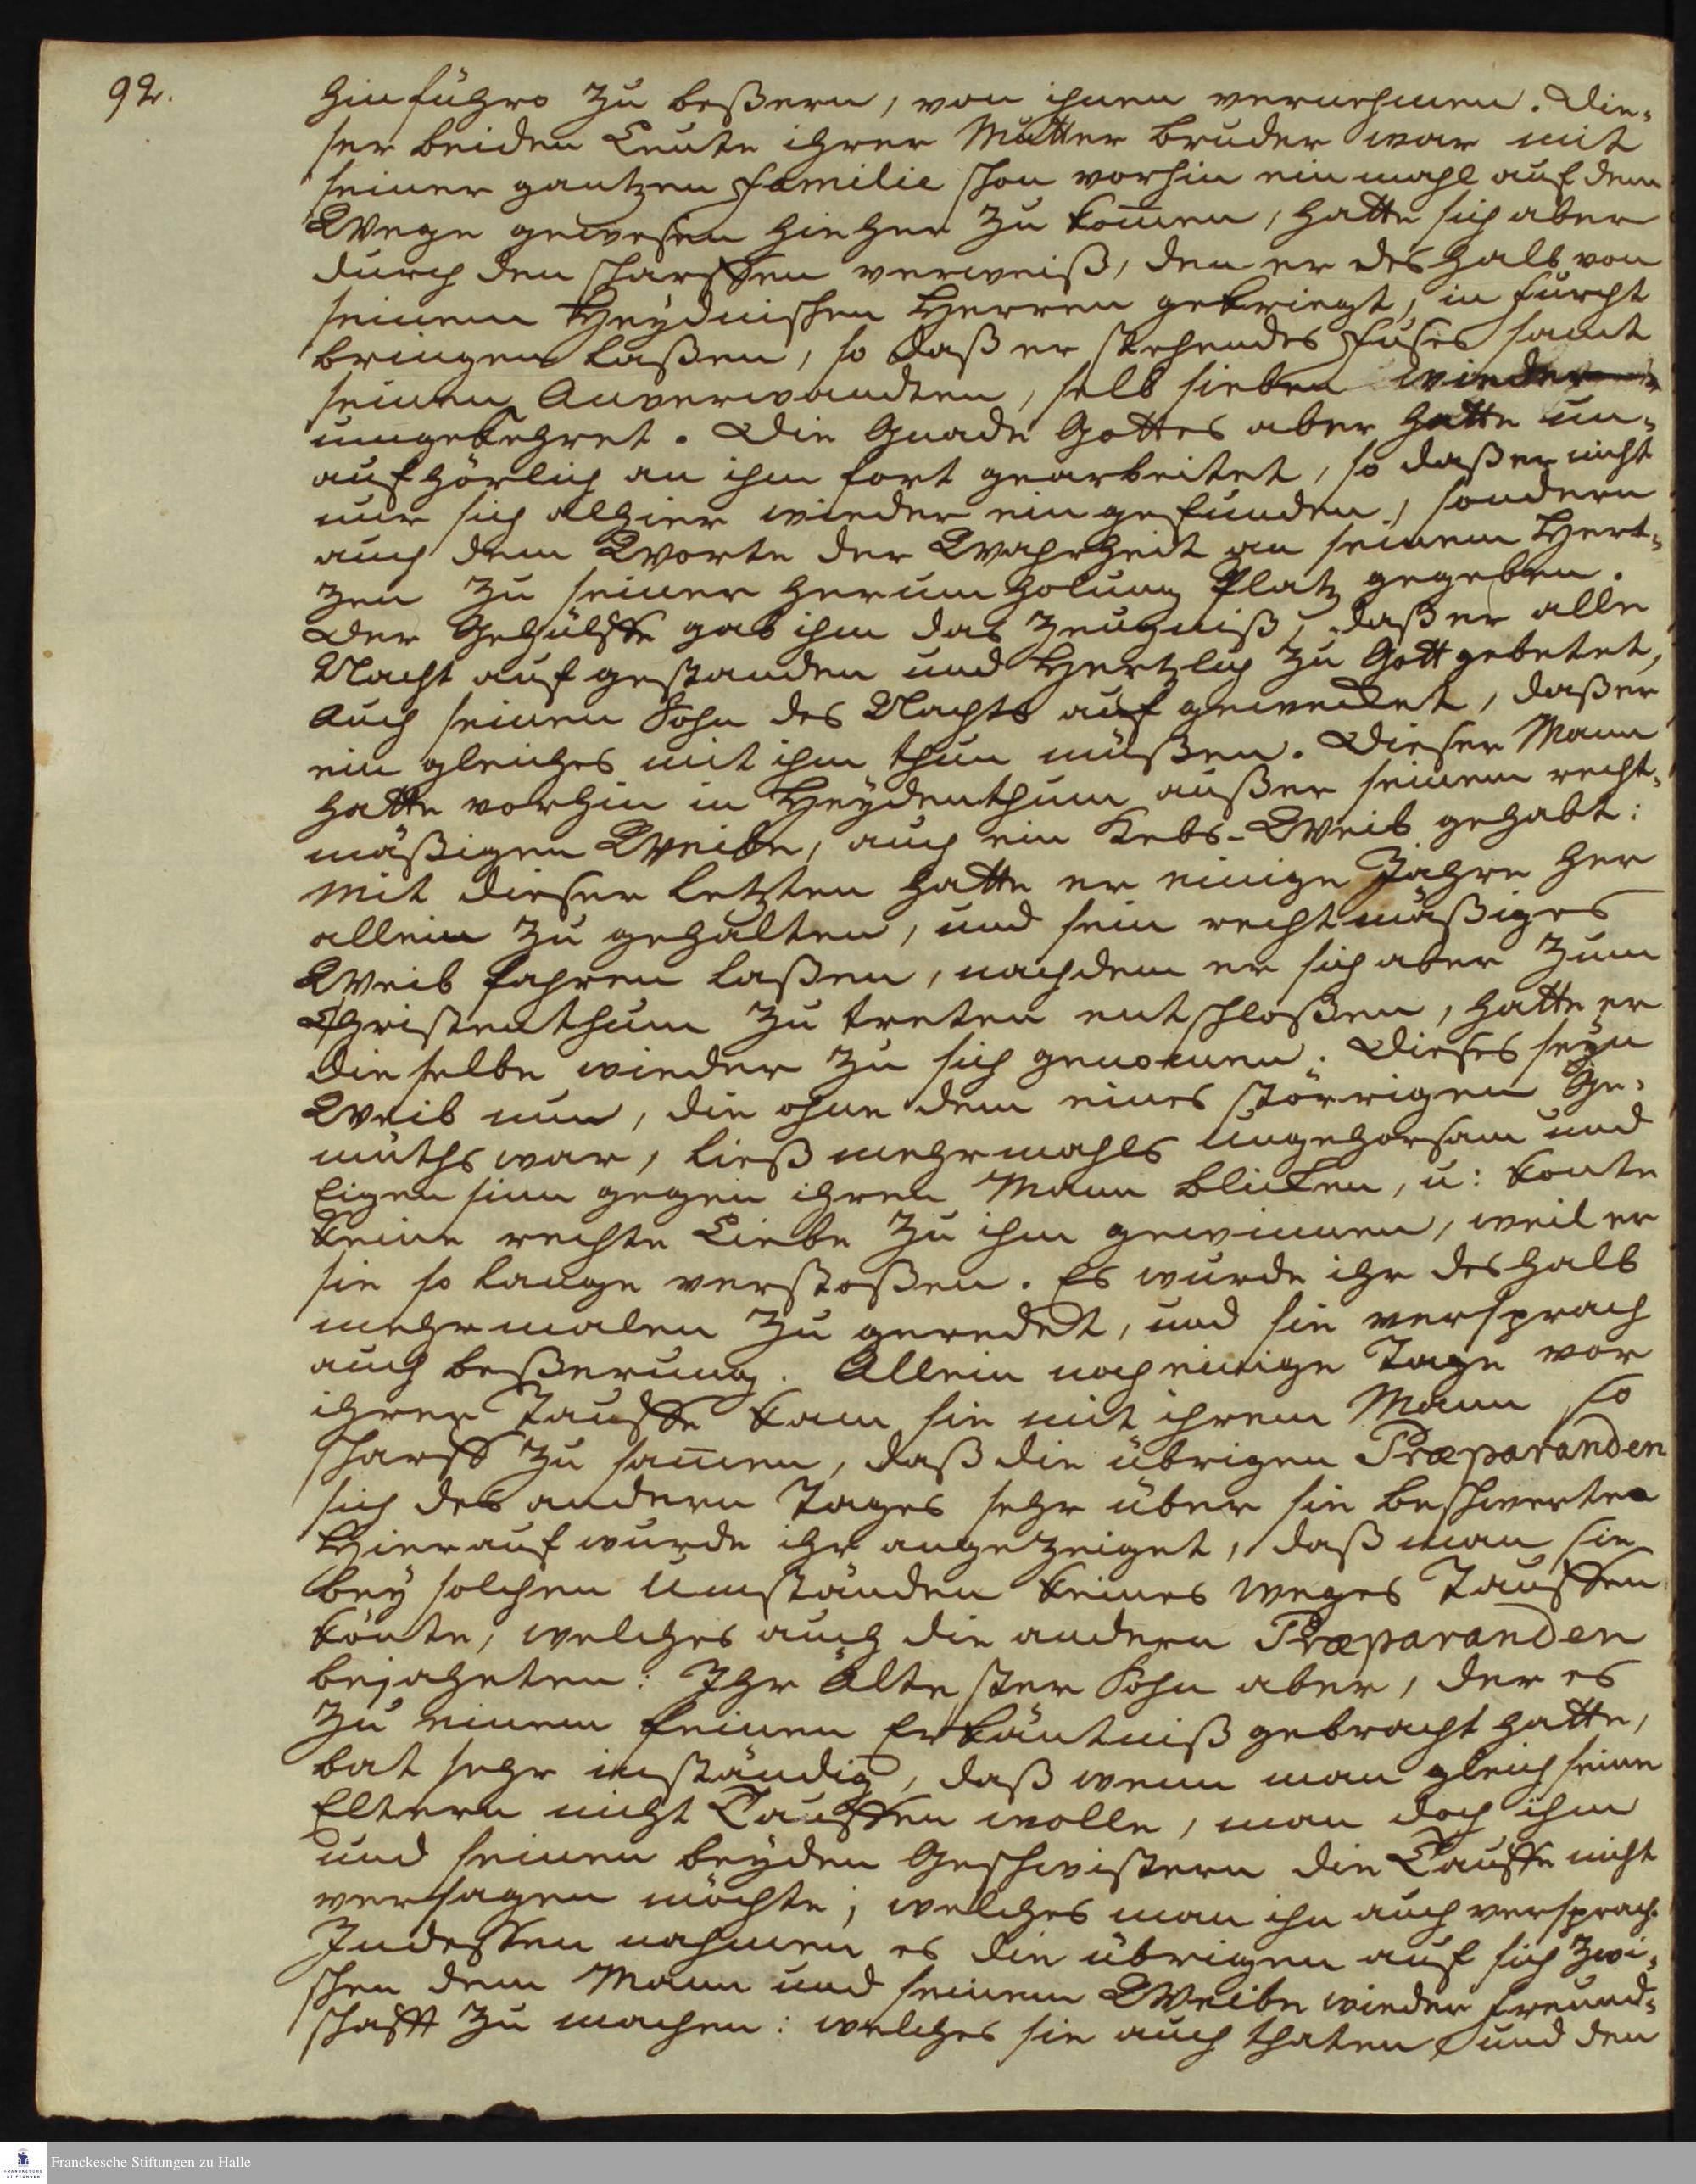 92.
hinführo zu beßern, von ihnen vernehmen. Die-
ser beiden Leute ihrer Mutter Bruder war mit
seiner gantzen Familie schon vorhin ein mahl auf dem
Wege gewesen hieher zu kom̄en, hatte sich aber
durch den scharffen verweiß, den er deshalb von
seinem Heydnischen Herren gekriegt, in furcht
bringen laßen, so daß er stehendes Fußes samt
seinen Anverwandten, selb sieben wieder
umgekehret. Die Gnade Gottes aber hatte un-
aufhörlich an ihm fort gearbeitet, so daß er nicht
nur sich alhier wieder ein gefunden, sondern
auch dem Worte der Wahrheit an seinem Hert-
zen zu seiner herum holung Platz gegeben.
Der Gehülffe gab ihm das Zeugniß, daß er alle
Nacht auf gestanden und Hertzlich zu Gott gebetet,
Auch seinen Sohn des Nachts auf gewecket, daß er
ein gleiches mit ihm thun müßen. Dieser Mann
hatte vorhin in Heydenthum außer seinem recht-
mäßigen Weibe, auch ein Kebs-Weib gehabt:
mit dieser letzten hatte er einige Jahre her
allein zu gehalten, und sein rechtmäßiges
Weib fahren laßen, nachdem er sich aber zum
Christenthum zu treten entschloßen, hatte er
die selbe wieder zu sich genom̄en. Dieses seyn
Weib nun, die ohne dem eines störrigen Ge-
müths war, ließ mehrmahls Ungehorsam und
Eigensinn gegen ihren Mann blicken, u: konte
keine rechte Liebe zu ihm gewinnen, weil er
sie so lange verstoßen. Es wurde ihr deshalb
mehrmalen zu geredet, und sie versprach
auch beßerung. Allein noch einige Tage vor
ihrer Tauffe kam sie mit ihrem Mann so
scharff zu sam̄en, daß die übrigen Præparanden
sich des andern Tages sehr über sie beschwerten
Hierauf wurde ihr angezeiget, daß man sie
bey solchen Umständen keines weges Tauffen
könte, welches auch die andern Præparanden
bejaheten: Ihr Ältester Sohn aber, der es
zu einem feinen Erkäntniß gebracht hatte,
bat sehr inständig, daß wenn man gleich seine
Eltern nicht Tauffen wolle, man doch ihm
und seinen beyden Geschwistern die Tauffe nicht
versagen möchte; welches man ihn auch versprach.
Indessen nahmen es die übrigen auf sich zwi-
schen dem Mann und seinem Weibe wieder freund-
schafft zu machen: welches sie auch thaten und den
Franckesche Stiftungen zu Halle
FRANCKESCHE
STIFTUNGEN